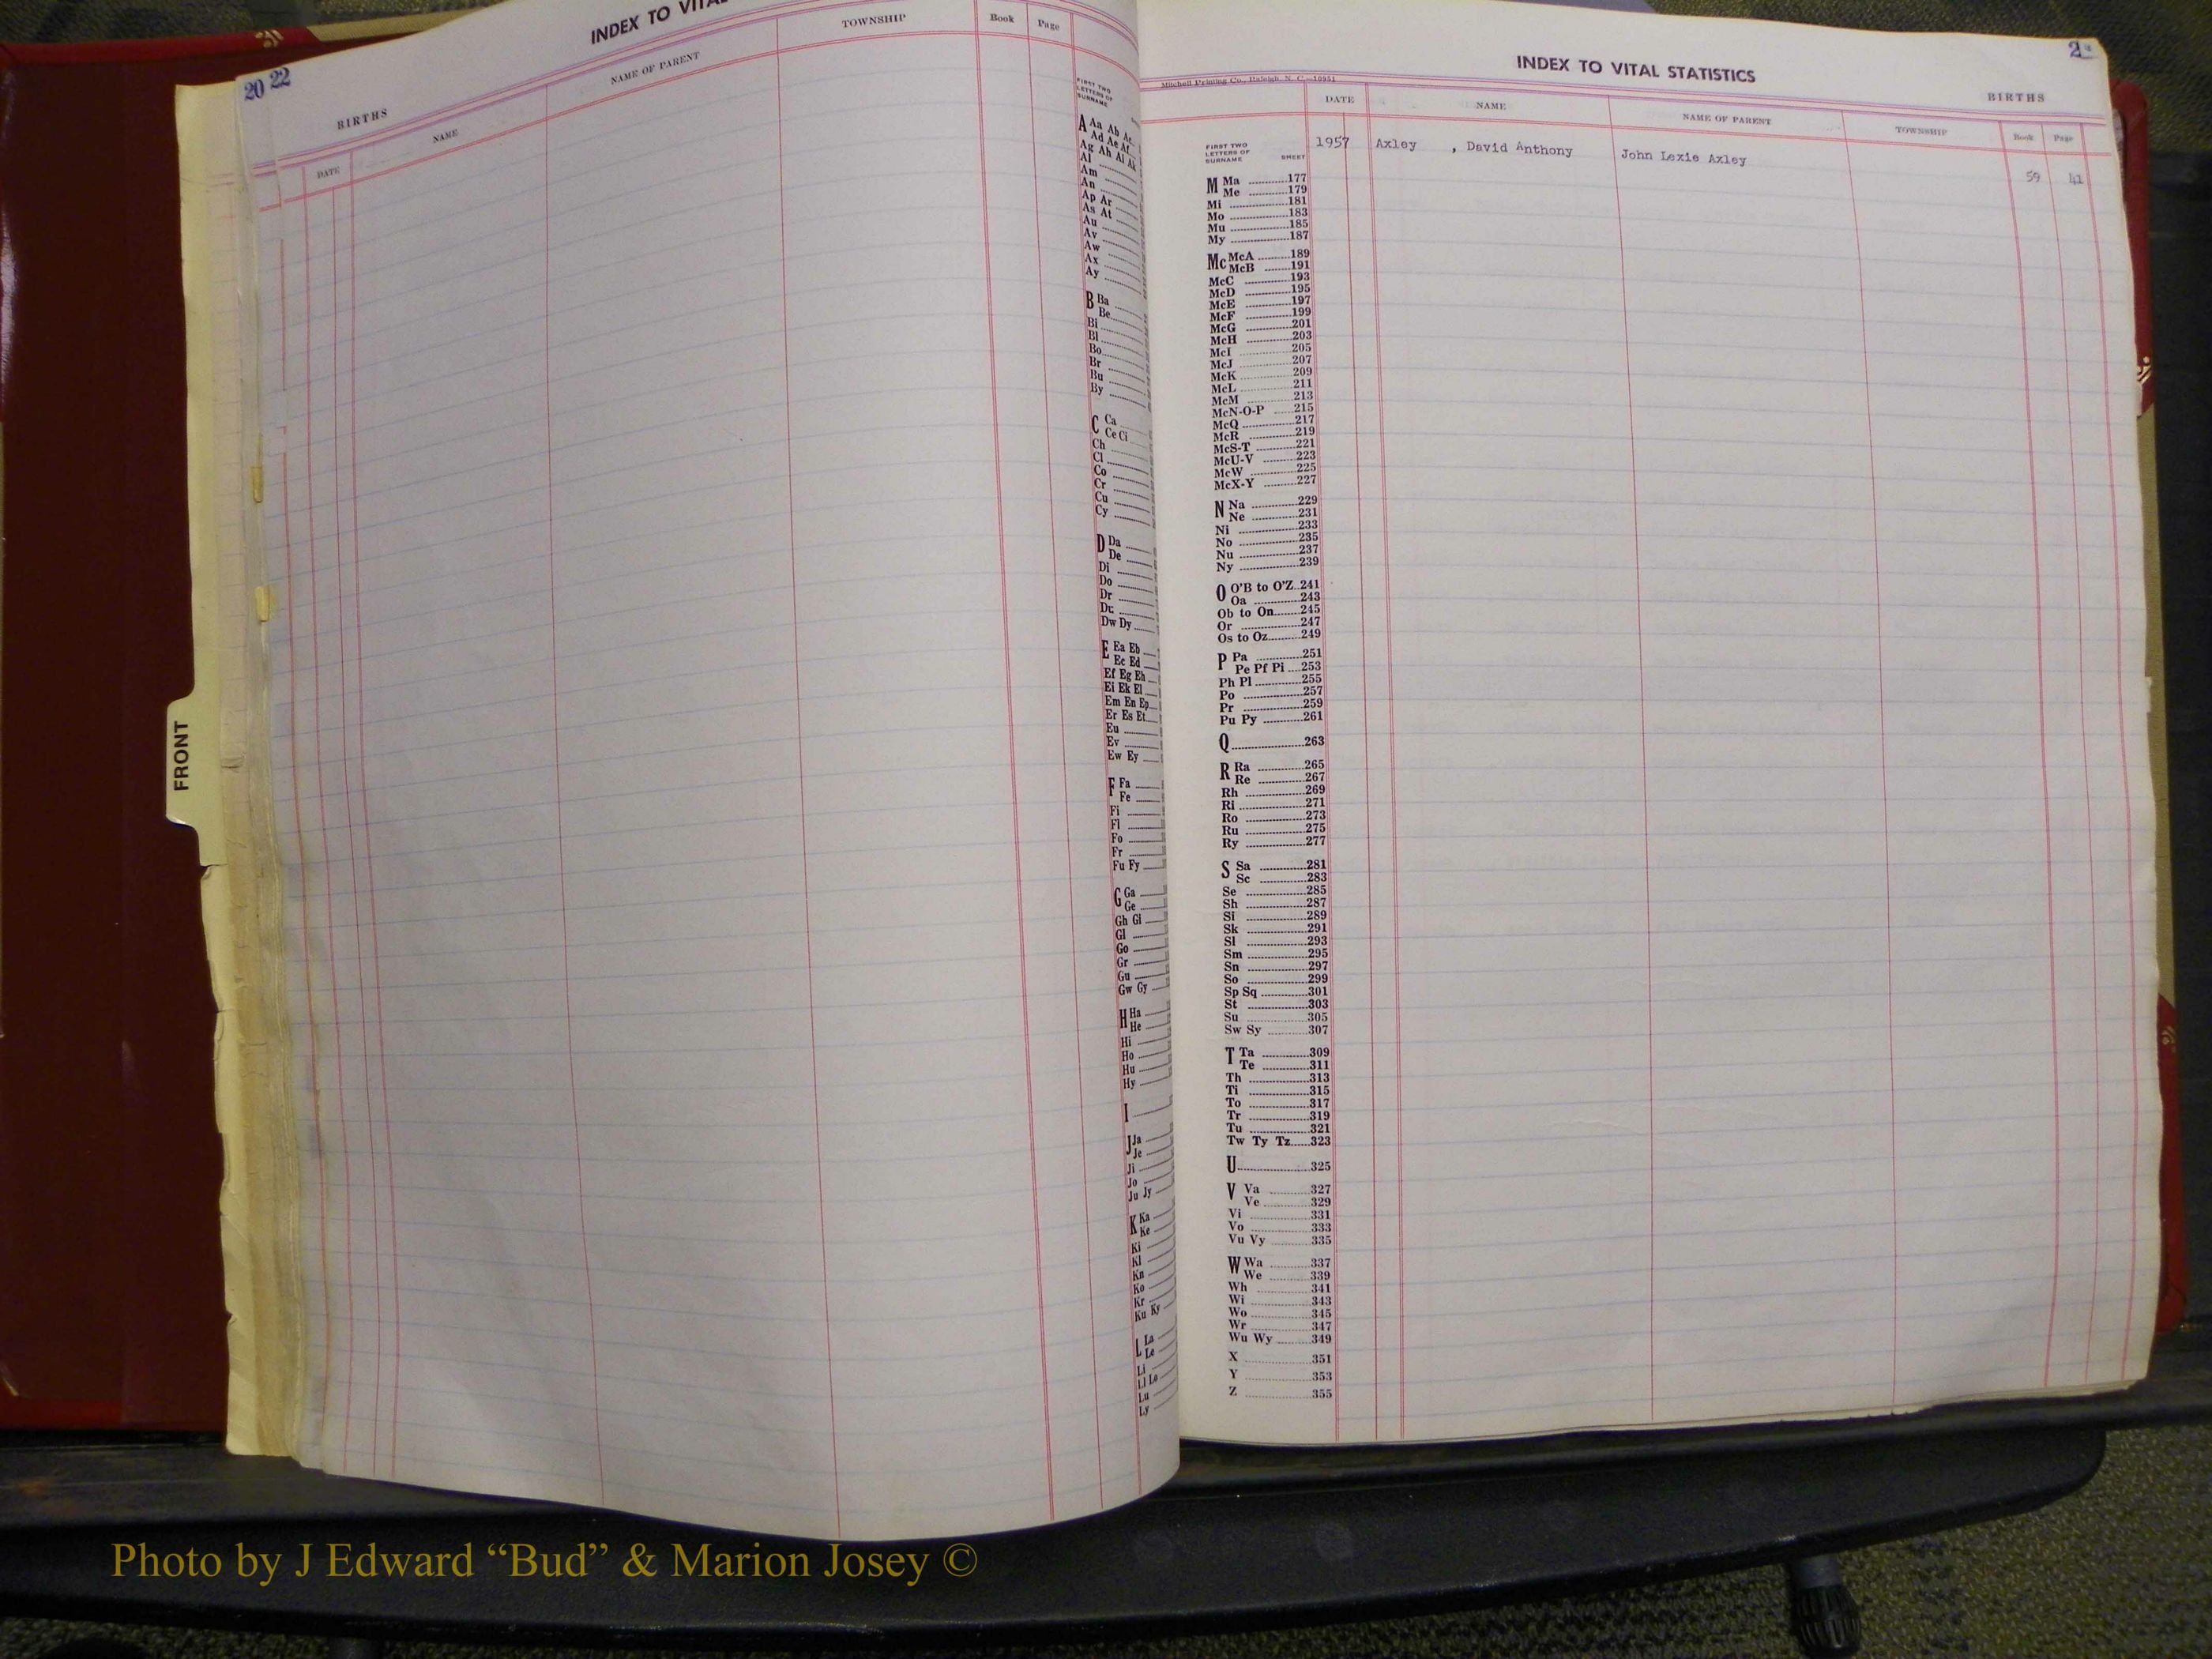 20 22
INDEX TO
BIRTHS
DATE
NAME
NAME OF PARENT
TOWNSHIP
Book
Page
FIRST TWO
LETTERS OF
SURNAME
A Aa Ab Ac
Ad Ae Af
Ag Ah Ai Ak
Al
Am
An
Ap Ar
As At
Au
Av
Aw
Ax
Ay
B Ba
Be
Bi
Bl
Bo
Br
Bu
By
C Ca
Ce Ci
Ch
Cl
Co
Cr
Cu
Cy
D Da
De
Di
Do
Dr
Du
Dw Dy
E Ea Eb
Ec Ed
Ef Eg Eh
Ei Ek El
Em En Ep
Er Es Et
Eu
Ev
Ew Ey
F Fa
Fe
Fi
Fl
Fo
Fr
Fu Fy
G Ga
Ge
Gh Gi
Gl
Go
Gr
Gu
Gw Gy
H Ha
He
Hi
Ho
Hu
Hy
I
J Ja
Je
Ji
Jo
Ju Jy
K Ka
Ke
Ki
Kl
Kn
Ko
Kr
Ku Ky
L La
Le
Li
Ll Lo
Lu
Ly
FRONT
INDEX TO VITAL STATISTICS
Mitchell Printing Co., Raleigh, N. C.—10951
BIRTHS
DATE
NAME
NAME OF PARENT
TOWNSHIP
Book
Page
1957 Axley , David Anthony John Lexie Axley 59 41
FIRST TWO
LETTERS OF
SURNAME SHEET
M Ma 177
Me 179
Mi 181
Mo 183
Mu 185
My 187
Mc McA 189
McB 191
McC 193
McD 195
McE 197
McF 199
McG 201
McH 203
McI 205
McJ 207
McK 209
McL 211
McM 213
McN-O-P 215
McQ 217
McR 219
McS-T 221
McU-V 223
McW 225
McX-Y 227
N Na 229
Ne 231
Ni 233
No 235
Nu 237
Ny 239
O O'B to O'Z 241
Oa 243
Ob to On 245
Or 247
Os to Oz 249
P Pa 251
Pe Pf Pi 253
Ph Pl 255
Po 257
Pr 259
Pu Py 261
Q 263
R Ra 265
Re 267
Rh 269
Ri 271
Ro 273
Ru 275
Ry 277
S Sa 281
Sc 283
Se 285
Sh 287
Si 289
Sk 291
Sl 293
Sm 295
Sn 297
So 299
Sp Sq 301
St 303
Su 305
Sw Sy 307
T Ta 309
Te 311
Th 313
Ti 315
To 317
Tr 319
Tu 321
Tw Ty Tz 323
U 325
V Va 327
Ve 329
Vi 331
Vo 333
Vu Vy 335
W Wa 337
We 339
Wh 341
Wi 343
Wo 345
Wr 347
Wu Wy 349
X 351
Y 353
Z 355
Photo by J Edward “Bud” & Marion Josey ©